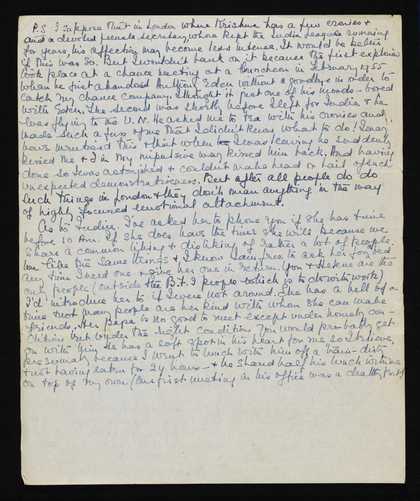 P.S. I suppose that in London where Krishna has a few cronies &
and a devoted female secretary whose kept the India League running
for years, his affection may become less intense. It would be better
if this was so. But I wouldn't bank on it because the first explosion
took place at a chance meeting at a luncheon in February 1955
when he first abandoned Anthony Eden without a goodbye in order to
catch my chance company. I thought it just one of his moods – bored
with Eden. The second was shortly before I left for India & he
was flying to the U.N. He asked me to tea with his cronies and
made such a fuss of me that I didn't know what to do. Many
hours members this & that when I was leaving he suddenly
kissed me & I in my impulsive way kissed him back. And having
done so I was astonished & couldn't make head or tail of such
unexpected demonstrativeness. But after all people do do
such things in London & they don't mean anything in the way
of highly focused emotional attachment.
As to Indira, I've asked her to phone you if she has time
before 10 Am. If she does have the time she will because we
share a common liking & disliking of rather a lot of people.
We like the same things & I know I am free to ask her for his
any time I need one & give her one in return. You & Helene are the
only people (outside the B.I.
I'd introduce her to if I were not around. She has a hell of a
time & not many people are her kind with whom she can make
friends. Her Papa is no good to meet except under homely con-
ditions but under the right conditions you would probably get
on with him. He has a soft spot in his heart for me
presumably because I went to lunch with him off a train – dirty
& not having eaten for 24 hours – & he shared half his lunch with me
on top of my own (Our first meeting in his office was a chatty first)